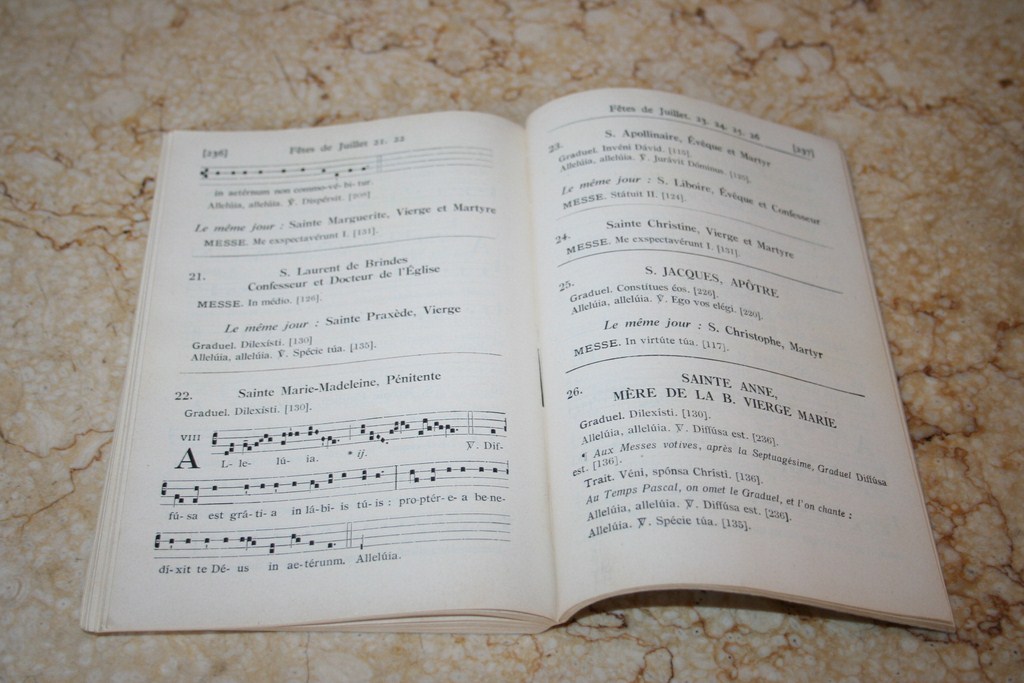 [236] Fêtes de Juillet 21. 22
in aetérnum non commo-vé- bi- tur.
Allelúia, allelúia. ℣. Dispérsit.
Le même jour : Sainte Marguerite, Vierge et Martyre
MESSE. Me exspectavérunt I. [131].
21. S. Laurent de Brindes
Confesseur et Docteur de l'Église
MESSE. In médio. [126].
Le même jour : Sainte Praxède, Vierge
Graduel. Dilexísti. [130]
Allelúia, allelúia. ℣. Spécie túa. [135].
22. Sainte Marie-Madeleine, Pénitente
Graduel. Dilexísti. [130].
VIII
A L- le- lú- ia. * ij. ℣. Dif-
fú- sa est grá- ti- a in lá- bi- is tú- is : pro ptér- e- a be ne-
dí- xit te Dé- us in ae- térunm. Allelúia.
Fêtes de Juillet. 23. 24. 25. 26 [237]
23. S. Apollinaire, Évêque et Martyr
Graduel. Invéni Dávid. [115].
Allelúia, allelúia. ℣. Jurávit Dóminus. [125].
Le même jour : S. Liboire, Évêque et Confesseur
MESSE. Státuit II. [124].
24. Sainte Christine, Vierge et Martyre
MESSE. Me exspectavérunt I. [131].
25. S. JACQUES, APÔTRE
Graduel. Constítues éos. [226].
Allelúia, allelúia. ℣. Ego vos elégi. [220].
Le même jour : S. Christophe, Martyr
MESSE. In virtúte túa. [117].
26. SAINTE ANNE,
MÈRE DE LA B. VIERGE MARIE
Graduel. Dilexísti. [130].
Allelúia, allelúia. ℣. Diffúsa est. [236].
¶ Aux Messes votives, après la Septuagésime, Graduel Diffúsa
est. [136].
Trait. Véni, spónsa Christi. [136].
Au Temps Pascal, on omet le Graduel, et l'on chante :
Allelúia, allelúia. ℣. Diffúsa est. [236].
Allelúia. ℣. Spécie túa. [135].